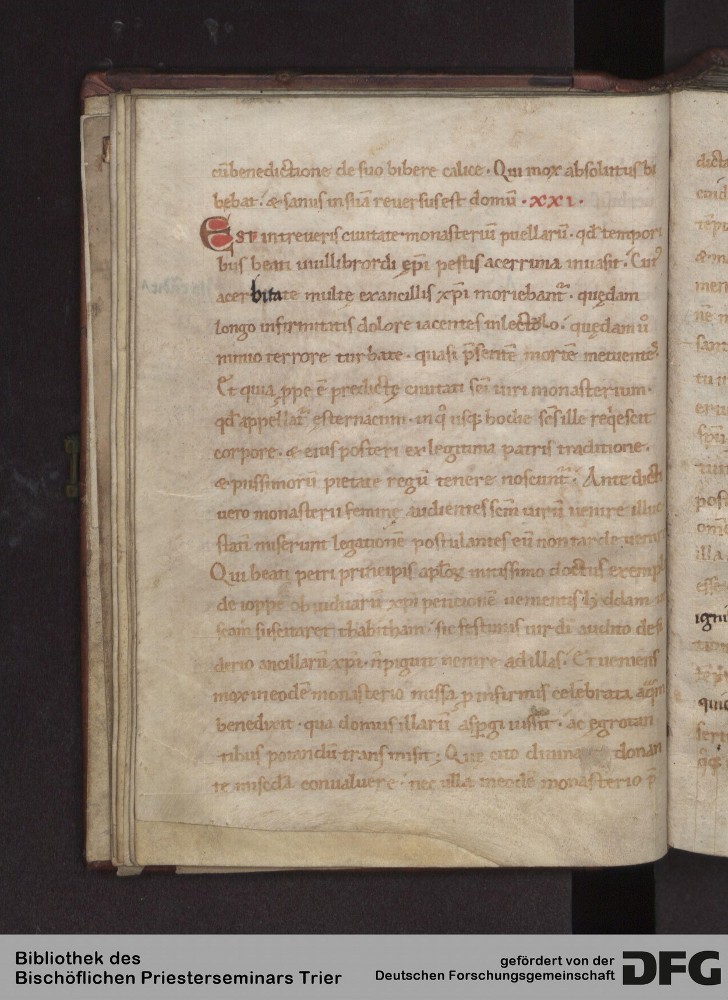 cū benedictione de suo bibere calice · Qui mox absolutus bi
bebat · & sanus in suā reuersus est domū · XXI ·
Est in treueris ciuitate monasteriū puellarū · qđ tempori
bus beati uuillibrordi epī pestis acerrima inuasit · Cuiꝰ
acerbitate multę ex ancillis xp̄i moriebant̄ · quędam
longo infirmitatis dolore iacentes in lectolo · quędam ū
nimio terrore turbate · quasi p̄sentē mortē metuentes
Et quia ꝓpe ē predictę ciuitati sc̄i uiri monasterium ·
qđ appellat̄ ęsternacum · in qͦ usq; hodie sc̄s ille reqͥescit
corpore · & eius posteri ex legitima patris traditione ·
& piissimorū pietate regū tenere noscunt̄ · Ante dictı
uero monasterii feminę audientes sc̄m uirū uenire illuc
statī miserunt legationē postulantes eū non tarde uenire
Qui beati petri principis apl̄oꝝ mitissimo doctus exempl
de ioppe ob uiduarū xp̄i peticionē uementis lyddam
scam suscitaret thabitham · sic festinus uir dī audito desi
derio ancillarū xp̄i · n̄ piguit uenire ad illas · Et ueniens
mox in eodē monasterio missā ꝓ infirmis celebrata aqͣm
benedixit · qua domus illarū aspgi iussit · ac egrotan
tibus potandū transmisit ; Que cito diuina donan
te miscđa conualuere · nec ulla in eodē monasterio p̄
dicta
ignı
quie
Bibliothek des
Bischöflichen Priesterseminars Trier
gefördert von der
Deutschen Forschungsgemeinschaft
DFG